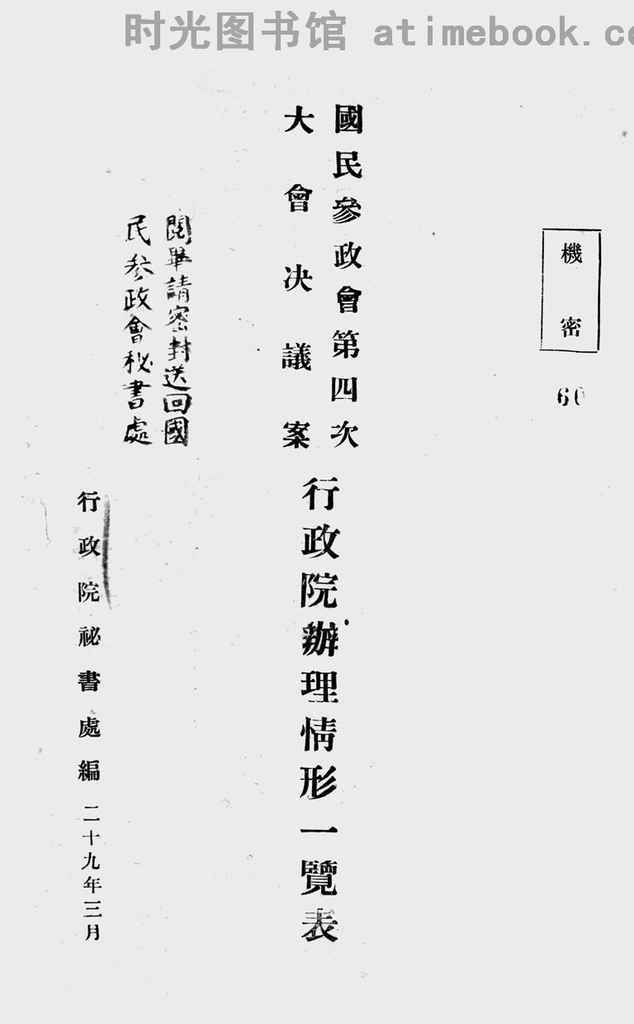 时光图书馆 atimebook.co
機密
60
國民參政會第四次
大會決議案
行政院辦理情形一覽表
閱畢請密封送回國
民参政會秘書處
行政院祕書處編 二十九年三月